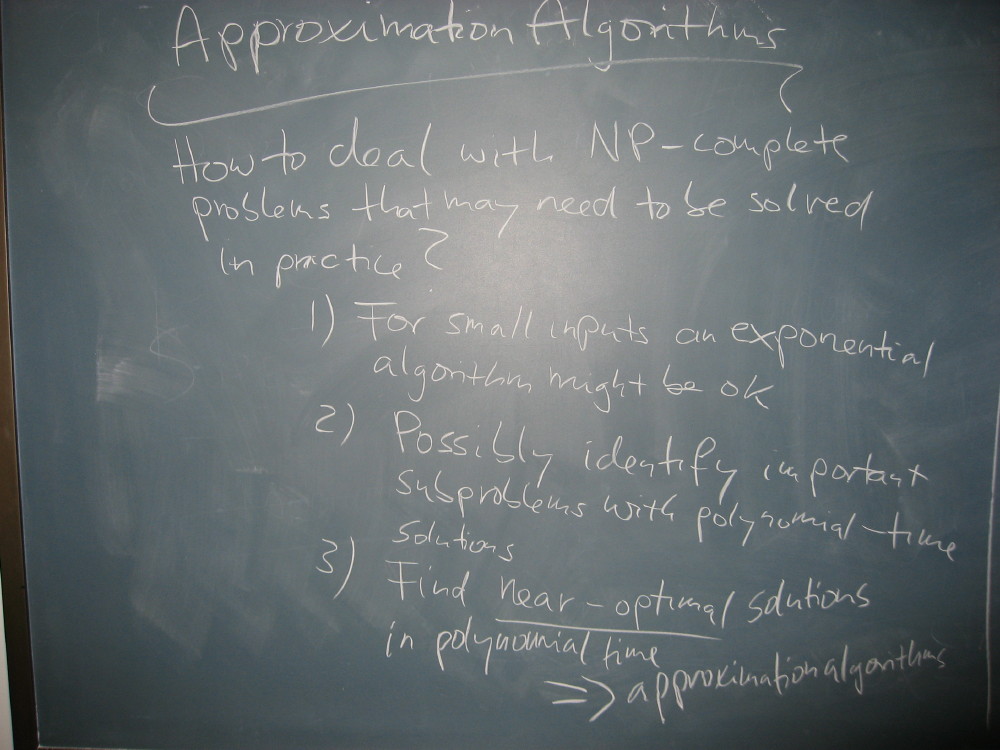 Approximation Algorithms
How to deal with NP-complete
problems that may need to be solved
in practice?
1) For small inputs an exponential
algorithm might be ok
2) Possibly identify important
subproblems with polynomial-time
solutions
3) Find near-optimal solutions
in polynomial time
=> approximation algorithms